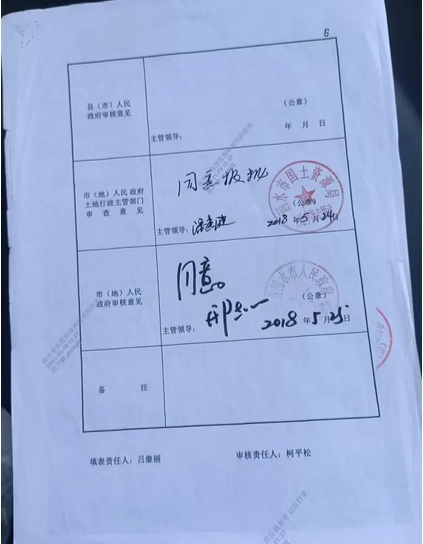 6
县（市）人民
政府审核意见
（公章）
主管领导：
年 月 日
市（地）人民政府
土地行政主管部门
审查意见
同意报批
市国土资源局
（公章）
主管领导：
2018 年 5 月 24 日
市（地）人民
政府审核意见
同意
水市人民政府
（公章）
主管领导：
2018 年 5 月 25 日
备 注
填表责任人：吕继丽
审核责任人：柯平松